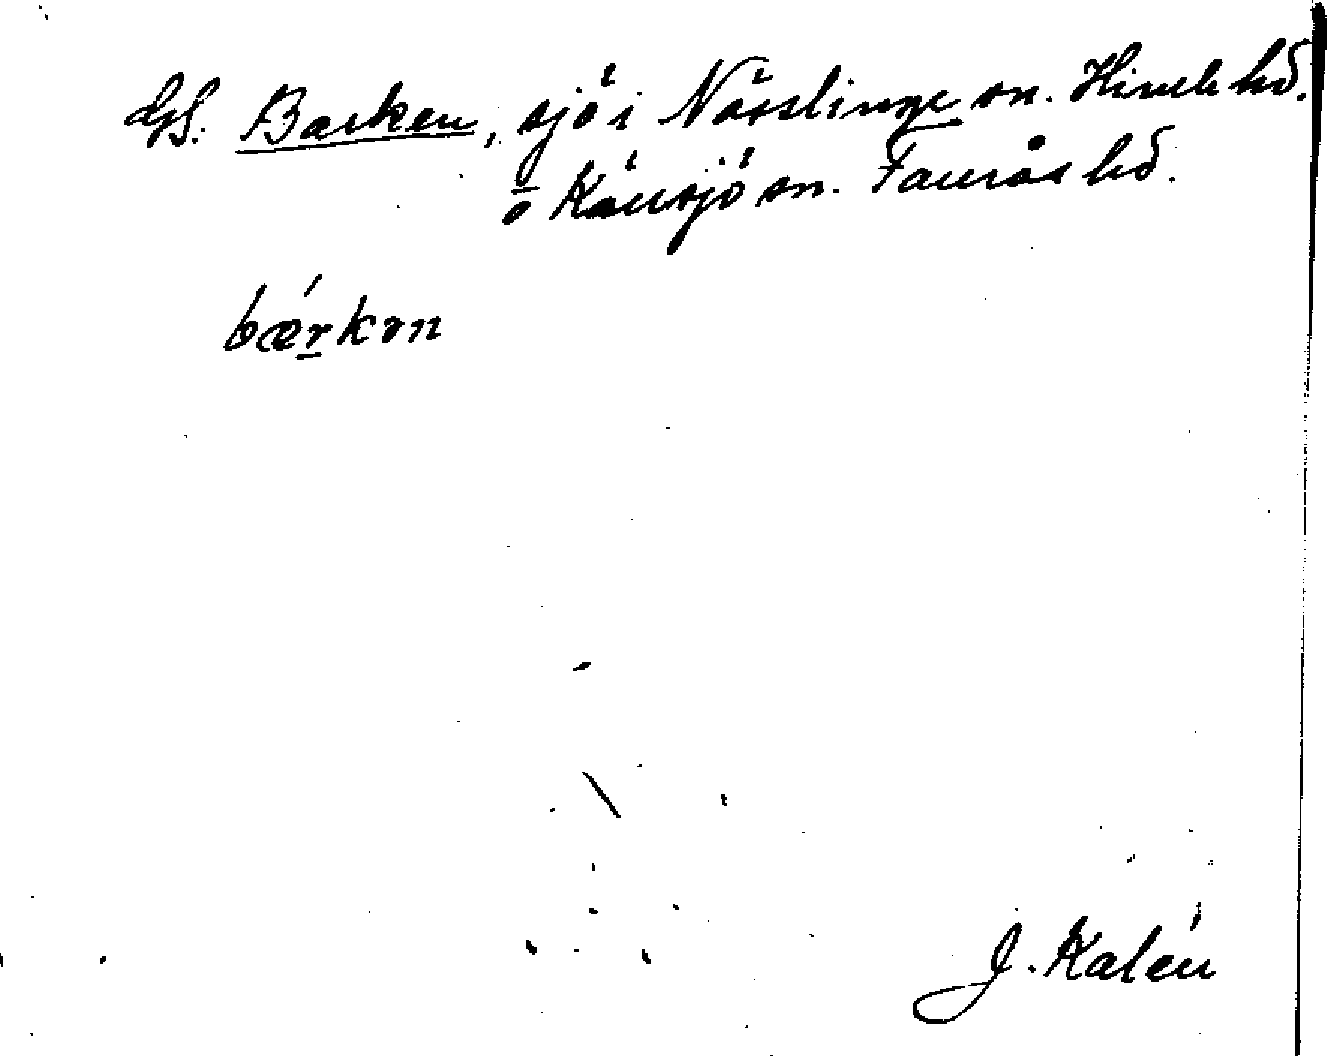 GS. Barken, sjö i Nösslinge sn. Himle hd.
o Källsjö sn. Faurås hd.
bǽrkən
J. Kalén